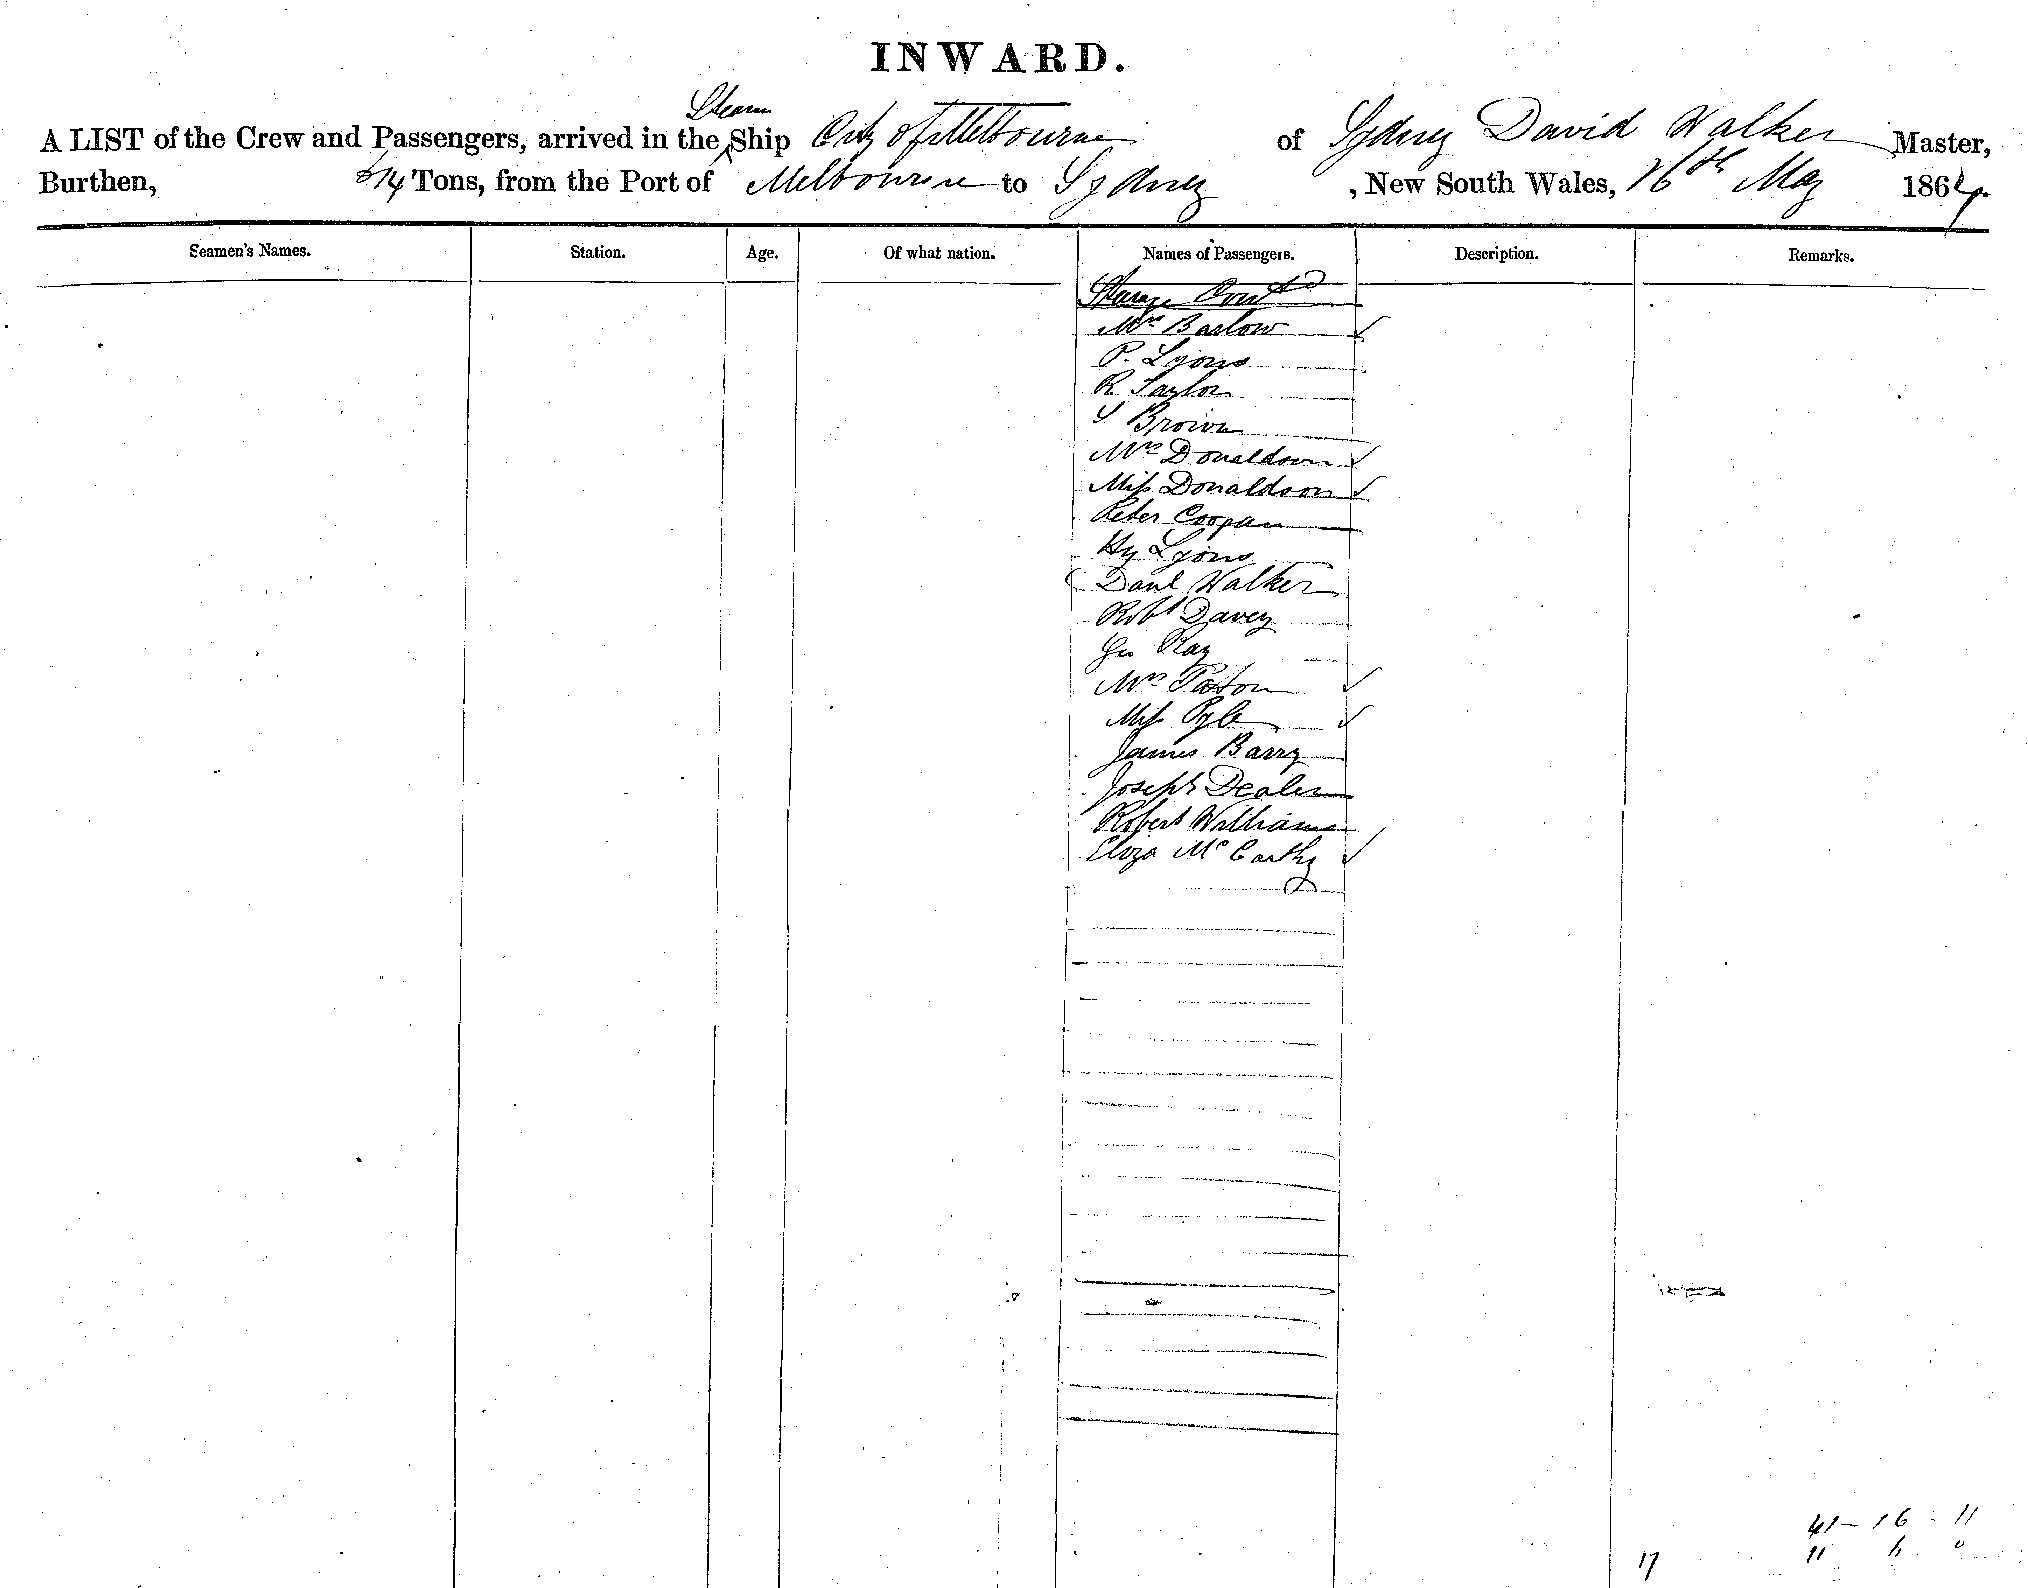 INWARD.
Steam
A LIST of the Crew and Passengers, arrived in the Ship City of Melbourne of Sydney David Walker Master,
Burthen, 614 Tons, from the Port of Melbourne to Sydney , New South Wales, 16th May 1864.
Seamen's Names. Station. Age. Of what nation. Names of Passengers. Description. Remarks.
Steerage Contd
Mrs Barlow
P. Lyons
R Taylor
S Brown
Mrs Donaldson
Miss Donaldson
Peter Coopan
Hy Lyons
Danl Walker
Robt Davey
Geo Ray
Mrs Paton
Miss Pyle
James Barry
Joseph Dealen
Robert Williams
Eliza McCarthy
41 - 16 - 11
17 11 6 0